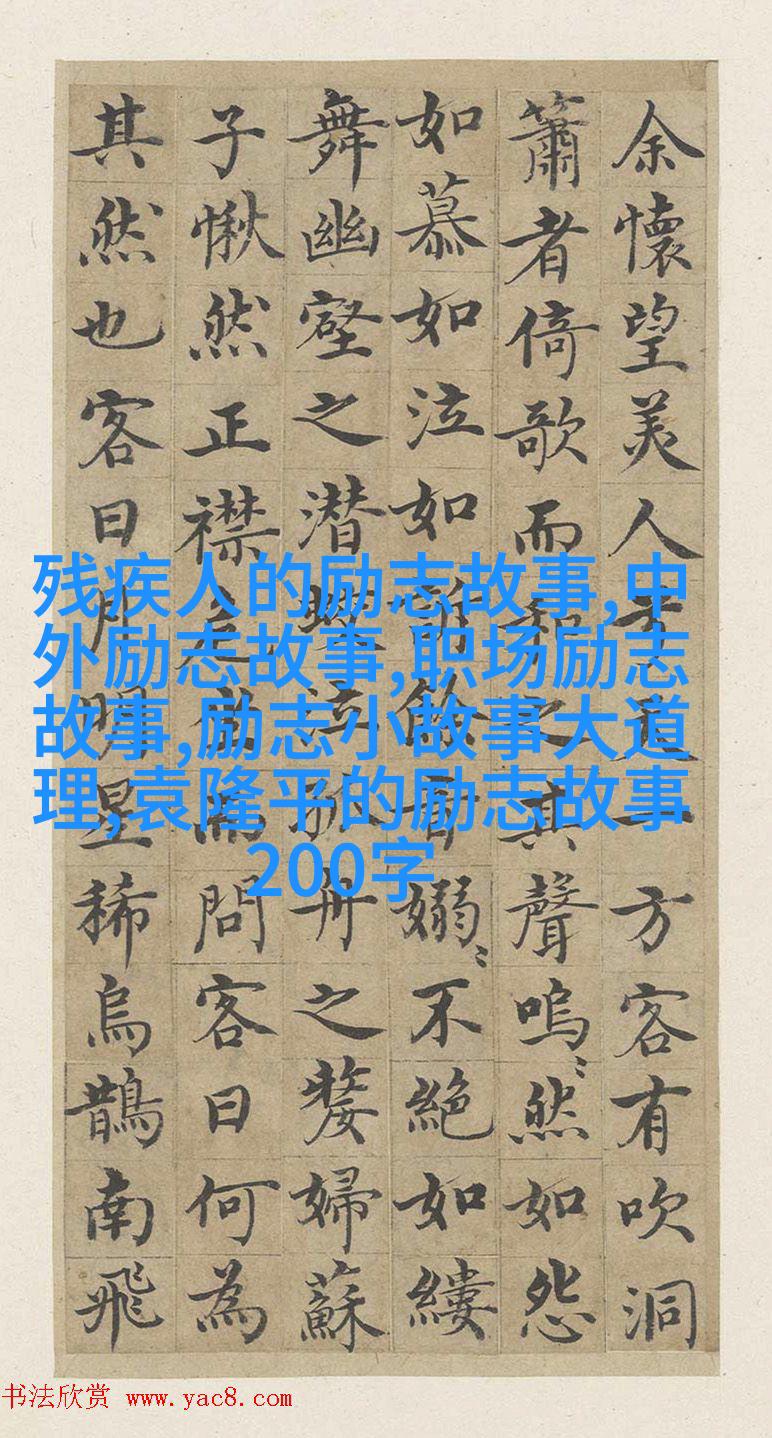 余懷望美人一方客有吹洞
簫者倚歌而和之其聲嗚〻然如怨
如慕如泣如訴餘音嫋〻不絕如縷
舞幽壑之潛蛟泣孤舟之嫠婦蘇
子愀然正襟危坐而問客曰何為
其然也客曰月明星稀烏鵲南飛
残疾人的励志故事,中
外励志故事,职场励志
故事,励志小故事大道
理,袁隆平的励志故事
200字
书法欣赏 www.yac8.com